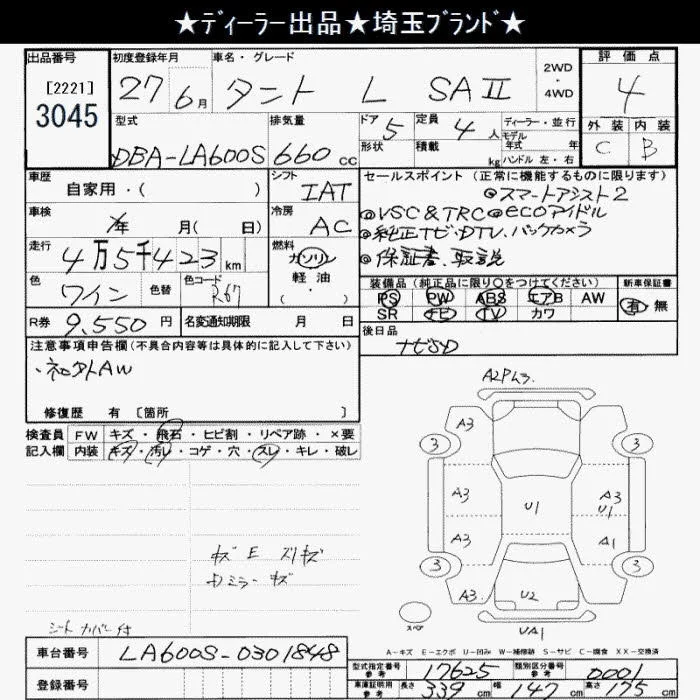 ★ディーラー出品★埼玉ブランド★
出品番号 初度登録年月 車名・グレード 2WD・4WD 評価点
[2221] 3045 27 6月 タント L SAⅡ 4
型式 排気量 ドア 5 定員 4人 ディーラー・並行 外装 内装
DBA-LA600S 660cc 形状 積載 kg モデル年式 年 ハンドル 左・右 C B
車歴 自家用・( ) シフト IAT セールスポイント (正常に機能するものに限ります)
◎スマートアシスト2
車検 年 月( 日) 冷房 AC ◎VSC&TRC◎ecoアイドル
走行 4万5千423km 燃料 ガソリン ◎純正ナビ・DTV、バックカメラ
軽油・( ) ◎保証書、取説
色 ワイン 色替 色コード R67 装備品 (純正品に限り○をつけてください) 新車保証書
PS PW ABS エアB AW 有・無
R券 9,550円 名変通知期限 月 日 SR ナビ TV カワ
注意事項申告欄(不具合内容等は具体的に記入して下さい) 後日品 ナビSD
修復歴 有 [箇所 ]
検査員記入欄 FW キズ・飛石・ヒビ割・リペア跡・×要
内装 キズ・汚レ・コゲ・穴・スレ・キレ・破レ
A3
3 3
A3 U1 A3 U1
A3 A1
3 3
A3 U2
UA1
キズ E スリキズ
ミラー キズ
シートカバー付
スペア
A-キズ E-エクボ U-凹み W-補修跡 S-サビ C-腐食 XX-交換済
車台番号 LA600S-0301848 型式指定番号 参考 17625 類別区分番号 参考 0001
登録番号 車庫証明用 参考 長さ 339cm 幅 147cm 高さ 175cm